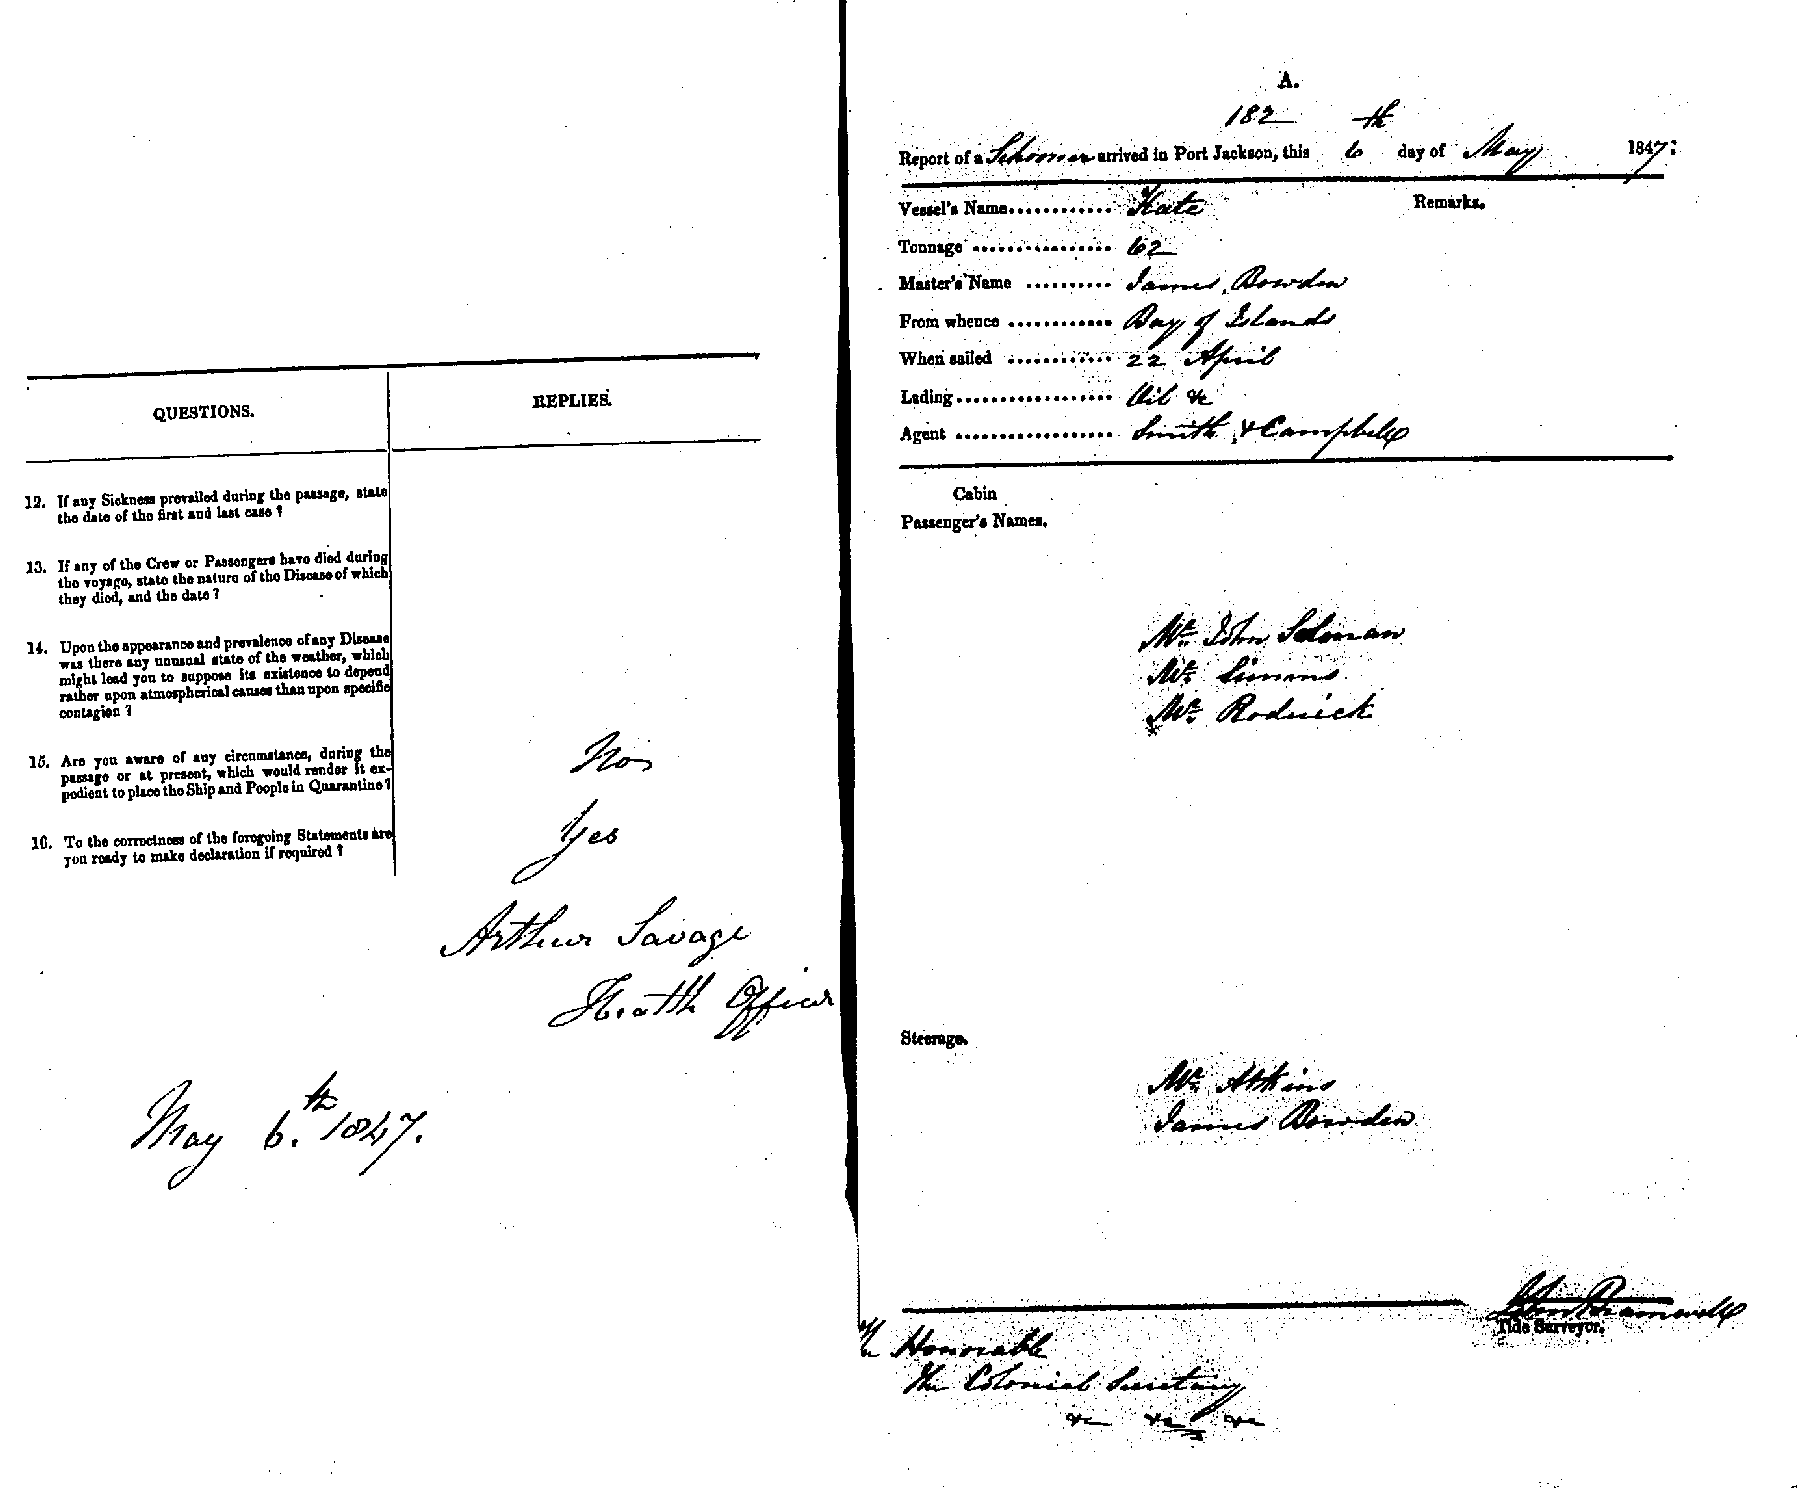 QUESTIONS.
REPLIES.
12. If any Sickness prevailed during the passage, state
the date of the first and last case?
13. If any of the Crew or Passengers have died during
the voyage, state the nature of the Disease of which
they died, and the date?
14. Upon the appearance and prevalence of any Disease
was there any unusual state of the weather, which
might lead you to suppose its existence to depend
rather upon atmospherical causes than upon specific
contagion?
15. Are you aware of any circumstance, during the
passage or at present, which would render it ex-
pedient to place the Ship and People in Quarantine?
No
16. To the correctness of the foregoing Statements are
you ready to make declaration if required?
Yes
Arthur Savage
Health Officer
May 6.th 1847.
A.
182
Report of a Schooner arrived in Port Jackson, this 6th day of May 1847:
Remarks.
Vessel's Name............ Kate
Tonnage ................ 62
Master's Name .......... James Bowden
From whence ............ Bay of Islands
When sailed ............ 22 April
Lading.................. Oil &c
Agent .................. Smith & Campbell
Cabin
Passenger's Names.
Mr. John Selman
Mr. Simms
Mr. Roderick
Steerage.
Mr. Atkins
James Bowden
John Bramwell
Tide Surveyor.
The Honorable
The Colonial Secretary
&c &c &c